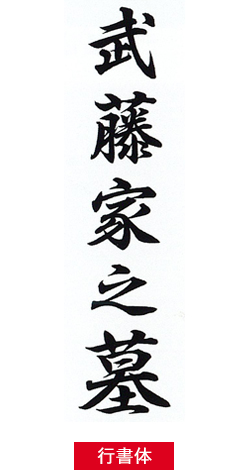 武藤家之墓
行書体